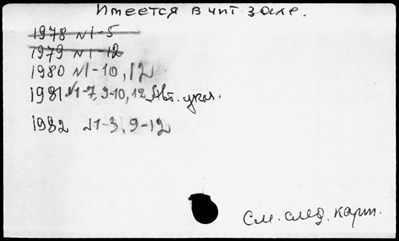 Имеется в чит. зале.
1978 №1-5
1979 №1-12
1980 №1-10, 12
1981 №1-7, 9-10, 12, Авт. указ.
1982 №1-3, 9-12
См. след. карт.